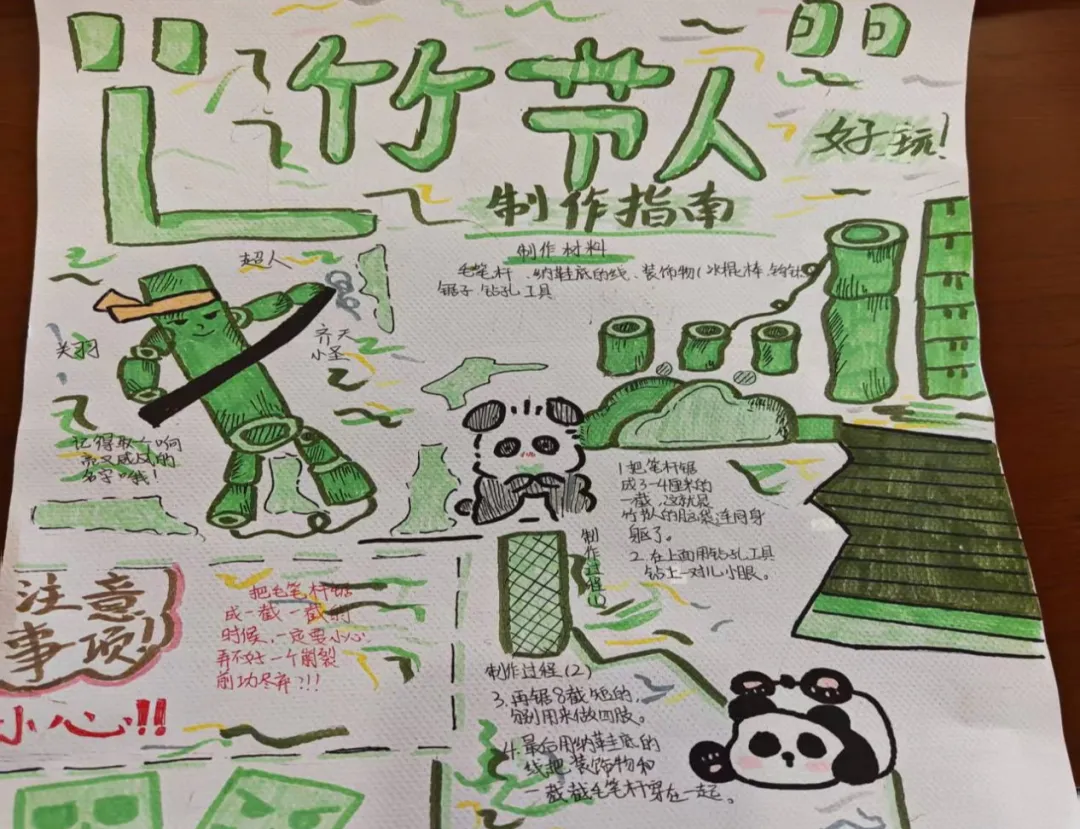 竹节人
好玩!
制作指南
制作材料
毛笔杆、纳鞋底的线、装饰物(冰棍棒、
锯子、钻孔工具
超人
关羽
齐天
小圣
记得取个响
亮又威风的
名字哦!
1.把笔杆锯
成3-4厘米的
一截,这就是
竹节人的脑袋连同身
躯了。
2.在上面用钻孔工具
钻上一对儿小眼。
制作过程①
注意
事项!
小心!!
把毛笔杆锯
成一截一截的
时候,一定要小心
弄不好一个崩裂
前功尽弃!!!
制作过程(2)
3.再锯8截短的,
分别用来做四肢。
4.最后用纳鞋底的
线把装饰物和
一截截毛笔杆穿在一起。